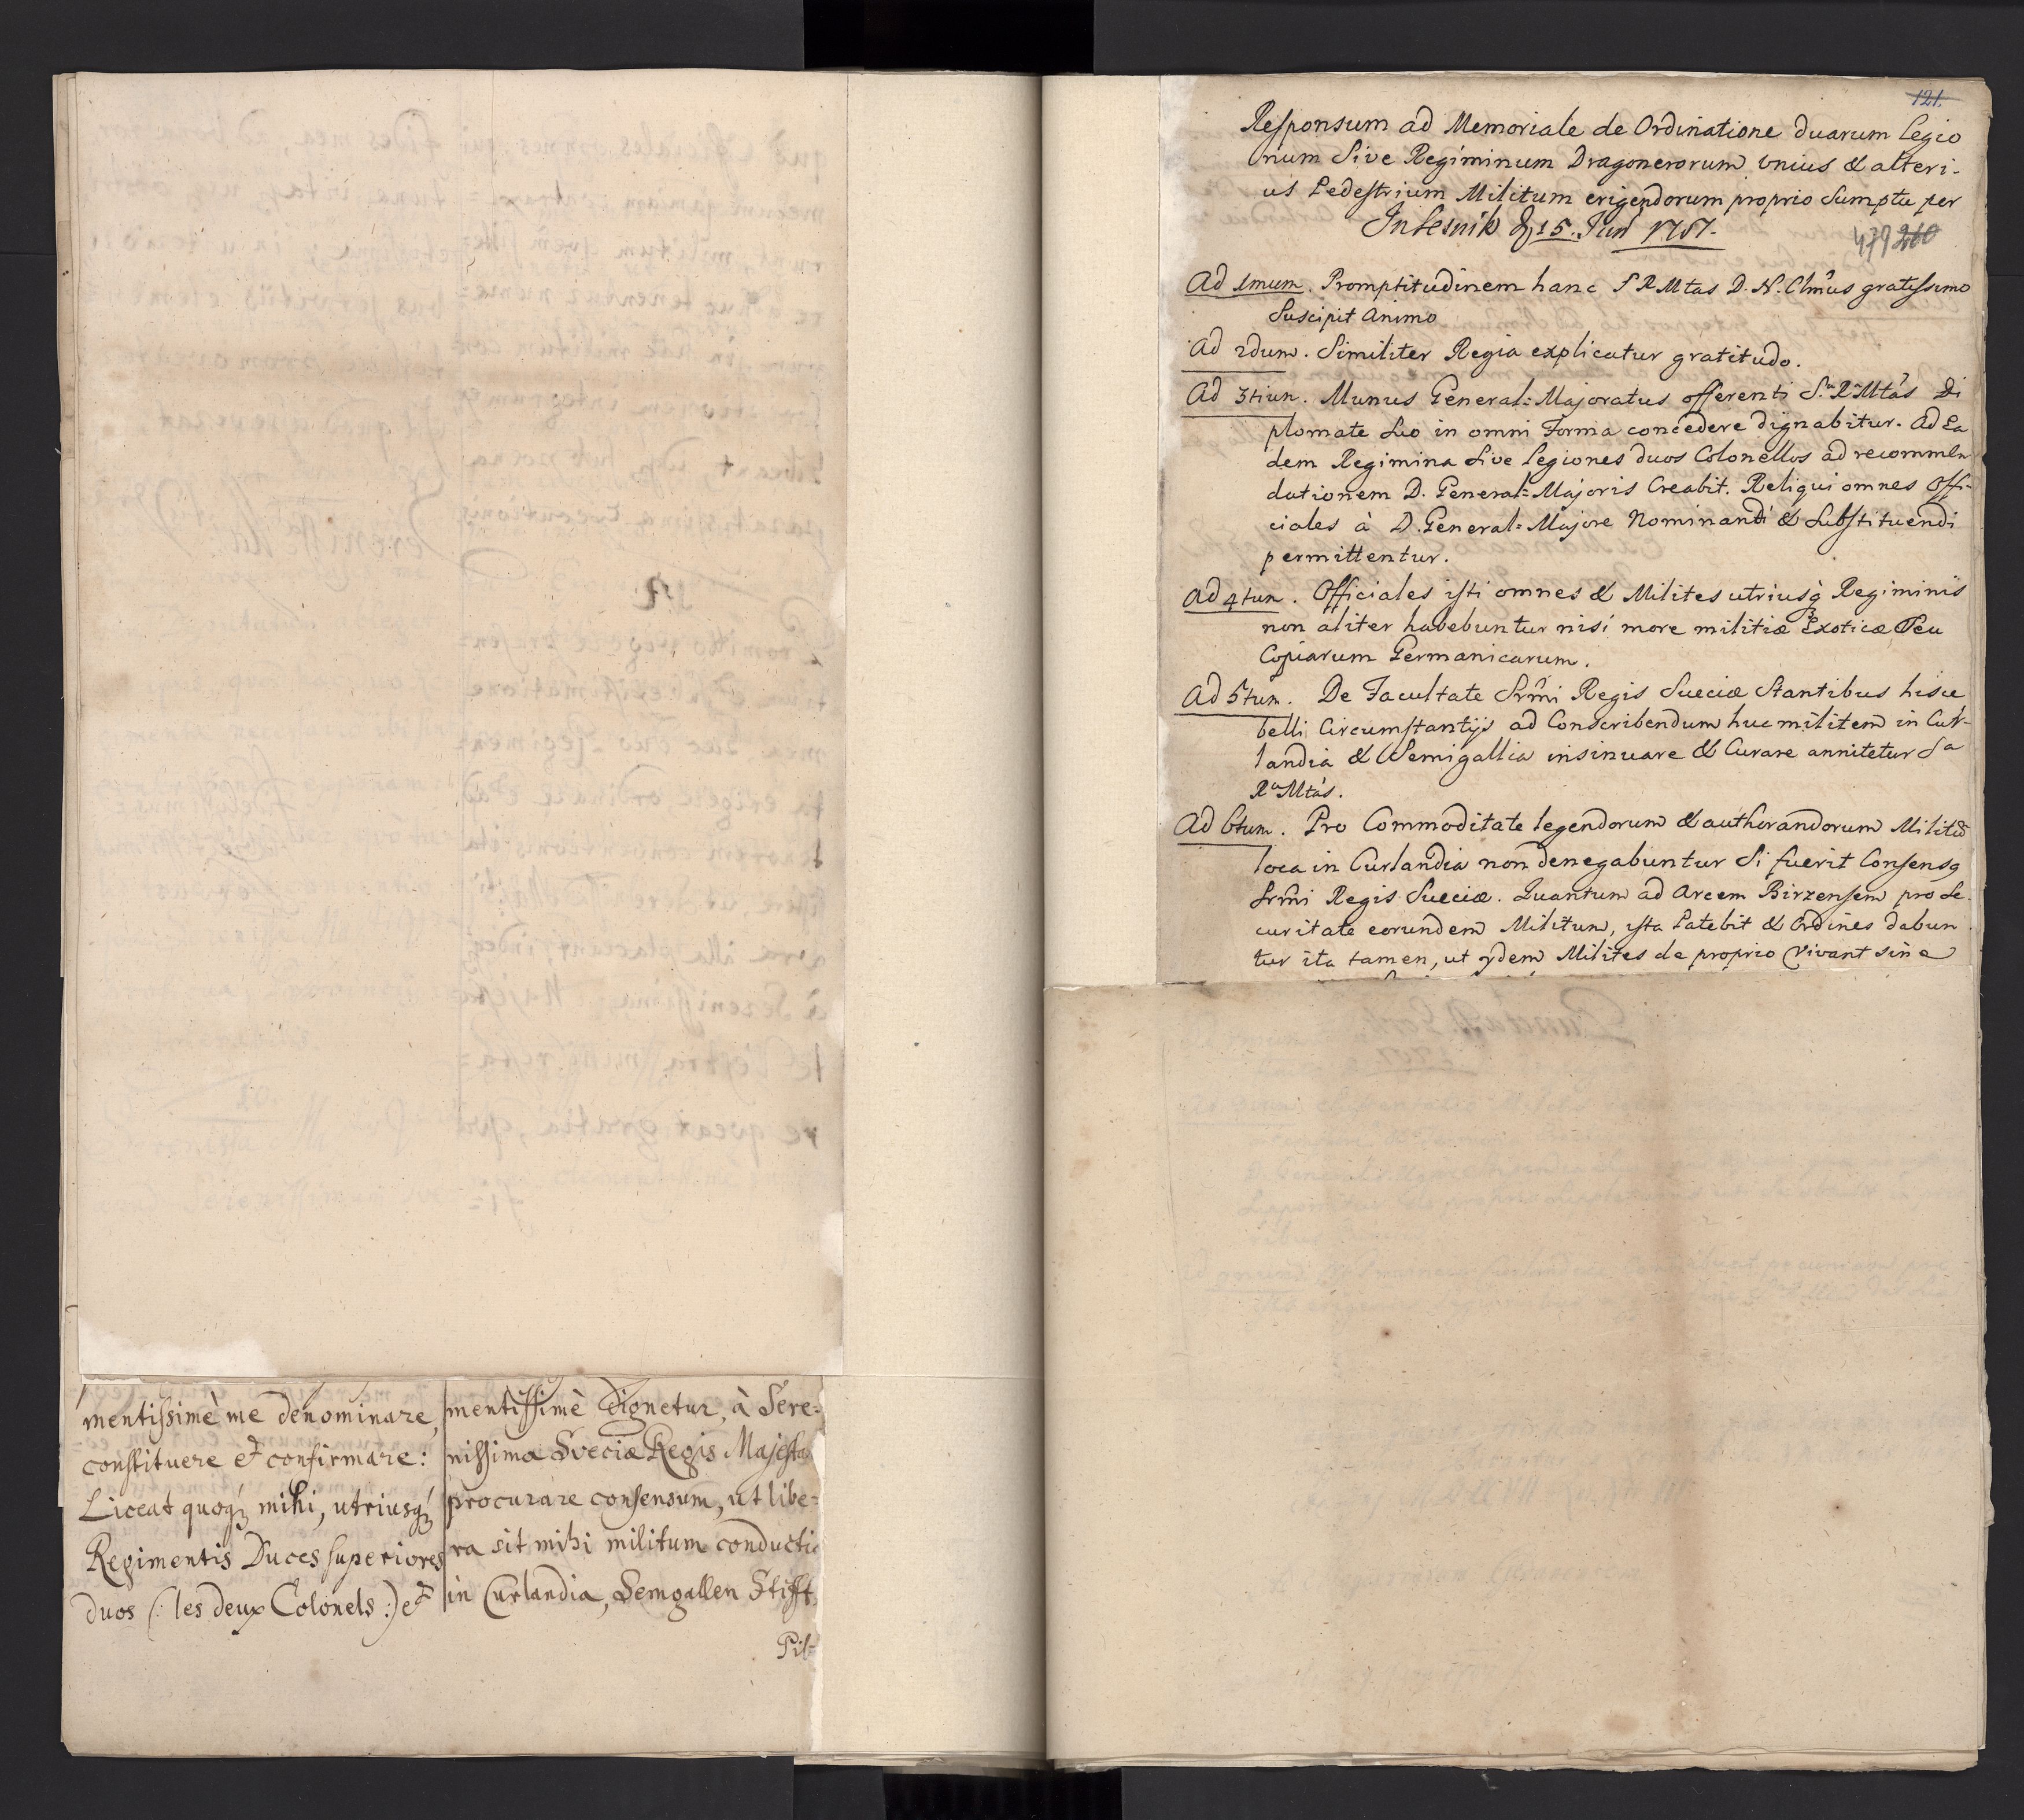 mentissimè me denominare,
constituere et confirmare:
Liceat quoq; mihi, utriusq;
Regimentis Duces superiores
duos (: les deux Colonels :) et
mentissimè dignetur, à Sere-
nissima Sveciæ Regis Majesta
procurare consensum, ut libe-
ra sit mihi militum conductio
in Curlandia, Semgallen Stifft,
Pil-
121.
Responsum ad Memoriale de Ordinatione duarum legio
num sive Regiminum Dragonerorum unius & alteri-
us Pedestrium Militum erigendorum proprio sumptu per
15. Jun 1701.
479 260
Ad 1mum. Promptitudinem hanc S R Mtas D. N. Clmus gratissimo
Suscipit Animo
Ad 2dum. Similiter Regia explicatur gratitudo.
Ad 3tiun. Munus General=Majoratus offerenti S. R Mtas Di
plomate suo in omni Forma concedere dignabitur. Ad Ea
dem Regimina sive legiones duos Colonellos ad recommen
dationem D. General=Majoris Creabit. Reliqui omnes Offi-
ciales à D. General=Majore Nominandi & Substituendi
permittentur.
Ad 4tun. Officiales isti omnes & Milites utriusq Regiminis
non aliter habebuntur nisi more militiæ Exoticæ seu
Copiarum Germanicarum.
Ad 5tum. De Facultate Srmi Regis Sueciæ Stantibus hisce
belli Circumstantijs ad Conscribendum huc militem in Cur-
landia & Semigallia insinuare & Curare annitetur Sa
Ra Mtas.
Ad 6tum. Pro Commoditate legendorum & authorandorum Militū
loca in Curlandia non denegabuntur si fuerit Consensq
Srmi Regis Sueciæ. Quantum ad Arcem Birzensem pro se
curitate eorundem Militum, ista Patebit & Ordines dabun
tur ita tamen, ut ijdem Milites de proprio vivant sine